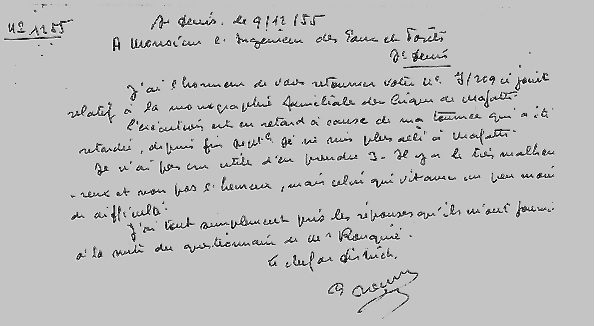 St Denis, le 9/12/55
N° 1255
A Monsieur l'Ingénieur des Eaux et Forêts
St Denis
J'ai l'honneur de vous retourner votre n° 7/209 ci joint
relatif à la monographie familiale des Cirque de Mafatte.
L'exécution est en retard à cause de ma tournée qui a été
retardée, depuis fin Sept. je ne suis plus allé à Mafatte.
Je n'ai pas cru utile d'en prendre 3. Il y a le très malheu
reux et non pas l'heureux, mais celui qui vit avec un peu moins
de difficulté.
J'ai tout simplement pris les réponses qu'ils m'ont fourni
à la suite du questionnaire de Mr
Le chef de district.